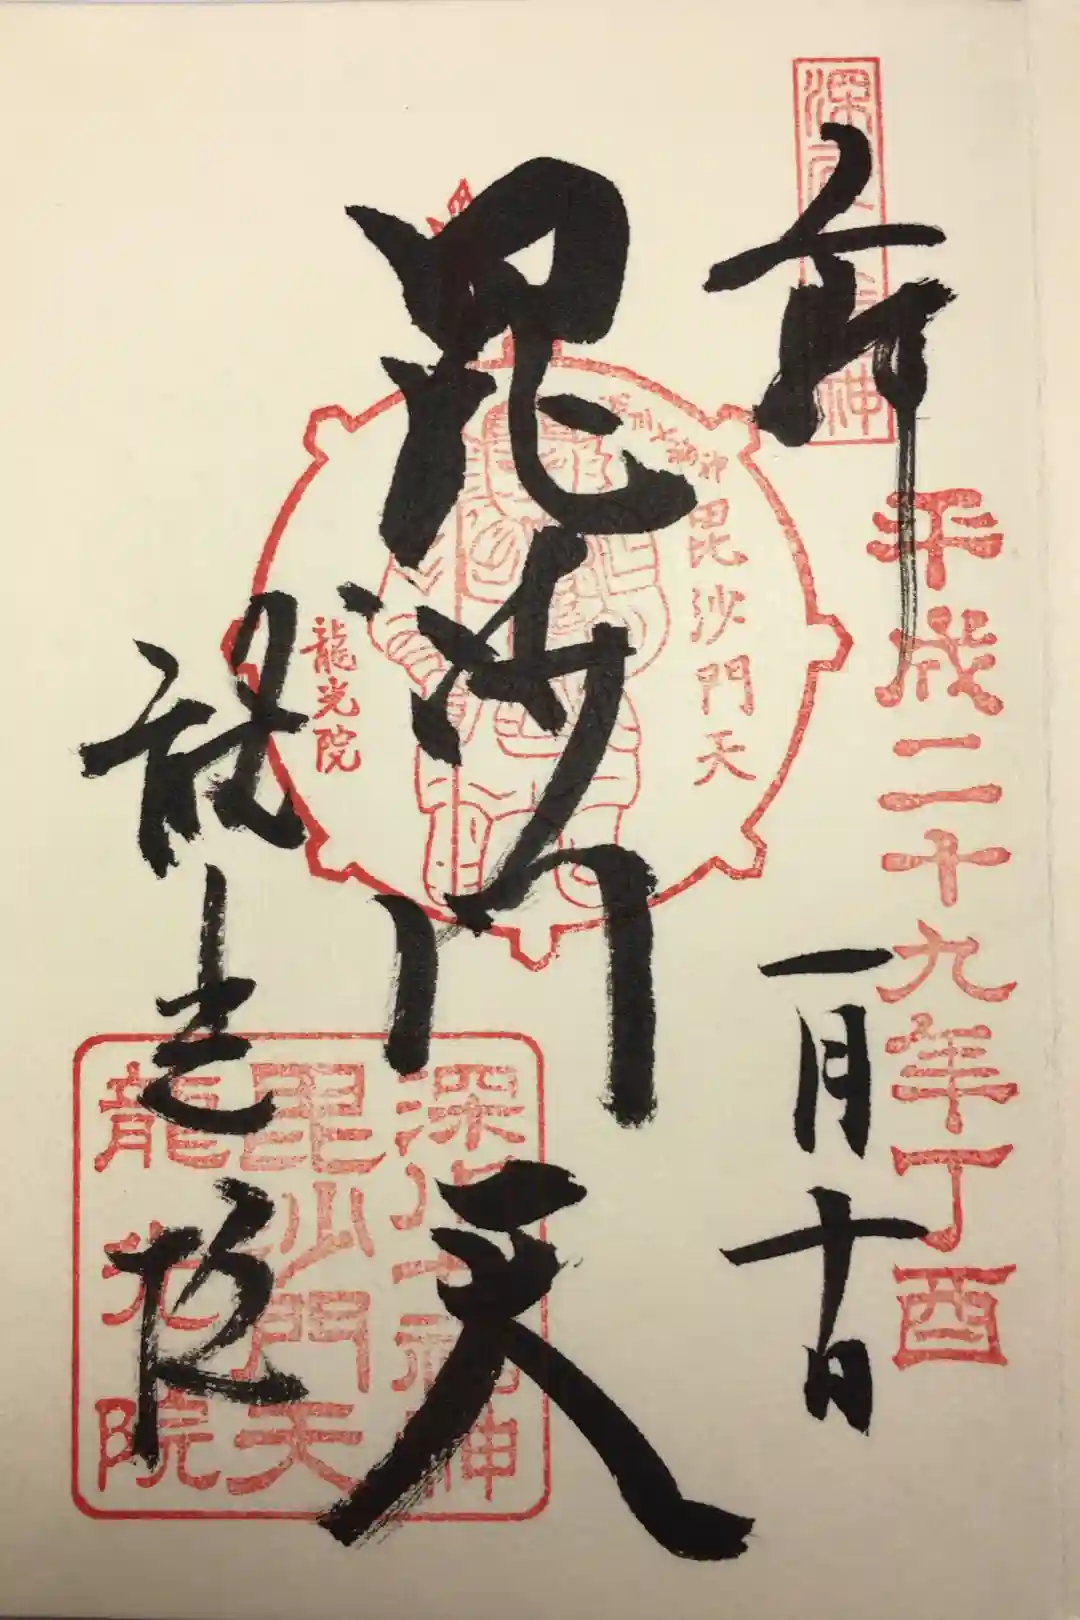 奉拝
深川七福神
平成二十九年丁酉
一月十日
毘沙門天
深川七福神
毘沙門天
龍光院
龍光院
深川七福神
毘沙門天
龍光院